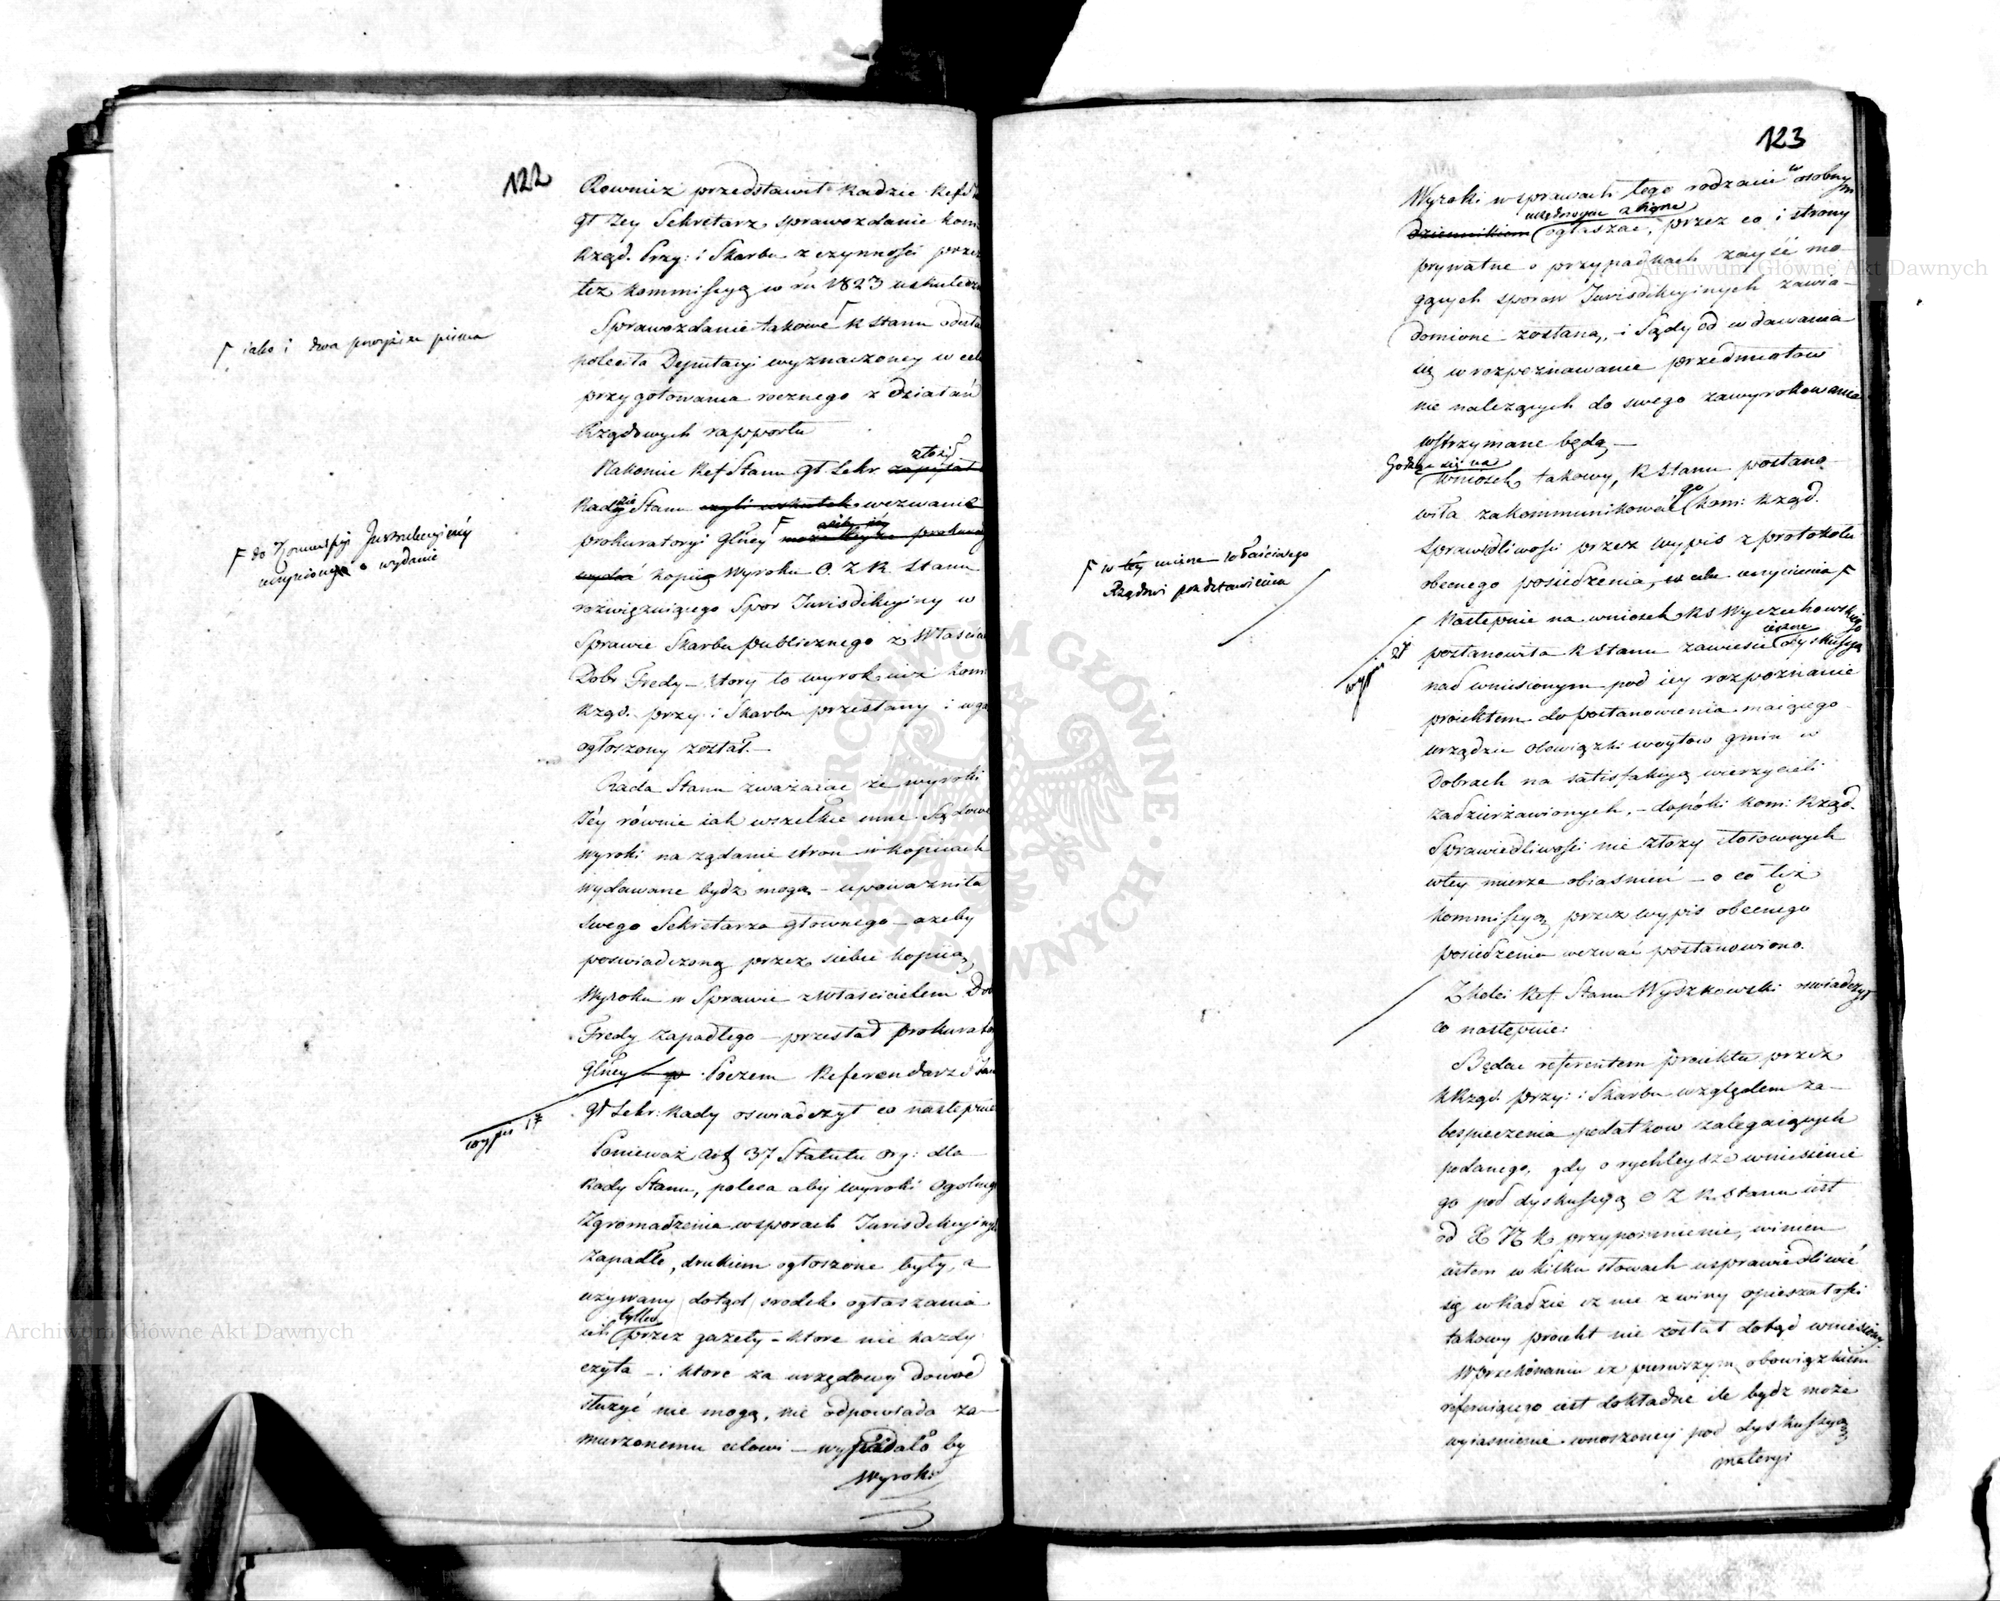 122
Rowniez przedstawił Radzie Ref. 
gł Jey Sekretarz sprawozdanie kom
Rząd. Przy: i Skarbu z czynności przez
też kommissyą w ru 1823 uskutecz
Sprawozdanie takowe Γ R Stanu odesła
poleciła Deputacyi wyznaczoney w celu
przygotowania rocznego z działań
Rządowych rapportu
Γ iako i dwa powyższe pisma
Nakoniec Ref Stanu gł. Sekr. złożył
Radzie Stanu wezwanie
prokuratoryi Głney Γ
kopiią Wyroku O. Z. R. Stanu
Γ do Kommissyi Instrukcyiney
uczynione o wydanie
rozwiązuiącego Spor Jurisdikcyiny w
Sprawie Skarbu publicznego z Właścic
Dobr Fredy – ktory to wyrok iuż kom:
Rząd. przy: i Skarbu przesłany i w ga
ogłoszony został. –
Rada Stanu zważaiąc że wyroki
Jéy równie iak wszelkie inne Sądowe
wyroki na żądanie stron w kopiiach
wydawane bydź mogą – upoważniła
swego Sekretarza głownego – ażeby
poswiadczoną przez siebie kopiią
Wyroku w Sprawie z Właścicielem Dob
Fredy zapadłego – przesłał prokurato
Głney Poczem Referendarz Stan
gł Sekr: Rady oswiadczył co następuie
wypis 1º
Ponieważ art 37 Statutu Org: dla
Rady Stanu, poleca aby wyroki Ogolneg
Zgromadzenia w sporach Jurisdikcyinyc
zapadłe, drukiem ogłoszone były, a
używany dotąd srodek ogłaszania
ich tylko przez gazety – ktore nie każdy
czyta – i ktore za urzędowy dowod
służyć nie mogą, nie odpowiada za-
mierzonemu celowi – wypadało by
Wyroki
123
Wyroki w sprawach tego rodzaiu w osobnym
dziennikiem urzędowym zbiorze ogłaszać, przez co i strony
prywatne o przypadkach zayść mo-
gących sporow Jurisdikcyinych zawia-
domione zostaną, i Sądy od wdawania
się w rozpoznawanie przedmiotow
nie należących do swego zawyrokowania
wstrzymane będą. –
Godząc się na wniosek takowy, R Stanu postano-
wiła zakommunikować go kom: Rząd.
Sprawiedliwości przez wypis z protokołu
obecnego posiedzenia, w celu uczynienia Γ
Γ w tey mierze właściwego
Rządowi przedstawienia
Następnie na wniosek RS Wyczechowskiego
postanowiła R Stanu zawiesić ieszcze dyskussyą
wyp. 2º
nad wniesionym pod iey rozpoznanie
proiektem do postanowienia maiącego
urządzić obowiązki woytow gmin w
Dobrach na satisfakcyą wierzycieli
zadzierżawionych, – dopóki kom: Rząd.
Sprawiedliwości nie złoży stosownych
w tey mierze obiaśnień – o co też
kommissyą przez wypis obecnego
posiedzenia wezwać postanowiono.
Zkolei Ref. Stanu Wyszkowski oswiadczył
co następuie:
Będąc referentem proiektu przez
K Rząd. przy: i Skarbu względem za-
bespieczenia podatkow zalegaiących
podanego, gdy o rychleysze wniesienie
go pod dyskussyą O Z R. Stanu iest
od przypomnienie, winien
iestem w kilku słowach usprawiedliwić
się w Radzie iż nie z winy opieszałości
takowy proiekt nie został dotąd wniesiony.
W przekonaniu iż pierwszym obowiązkiem
referuiącego iest dokładne ile bydź może
wyiaśnienie wnoszoney pod dyskussyą
materyi
Archiwum Główne Akt Dawnych
Archiwum Główne Akt Dawnych
ARCHIWUM GŁÓWNE AKT DAWNYCH